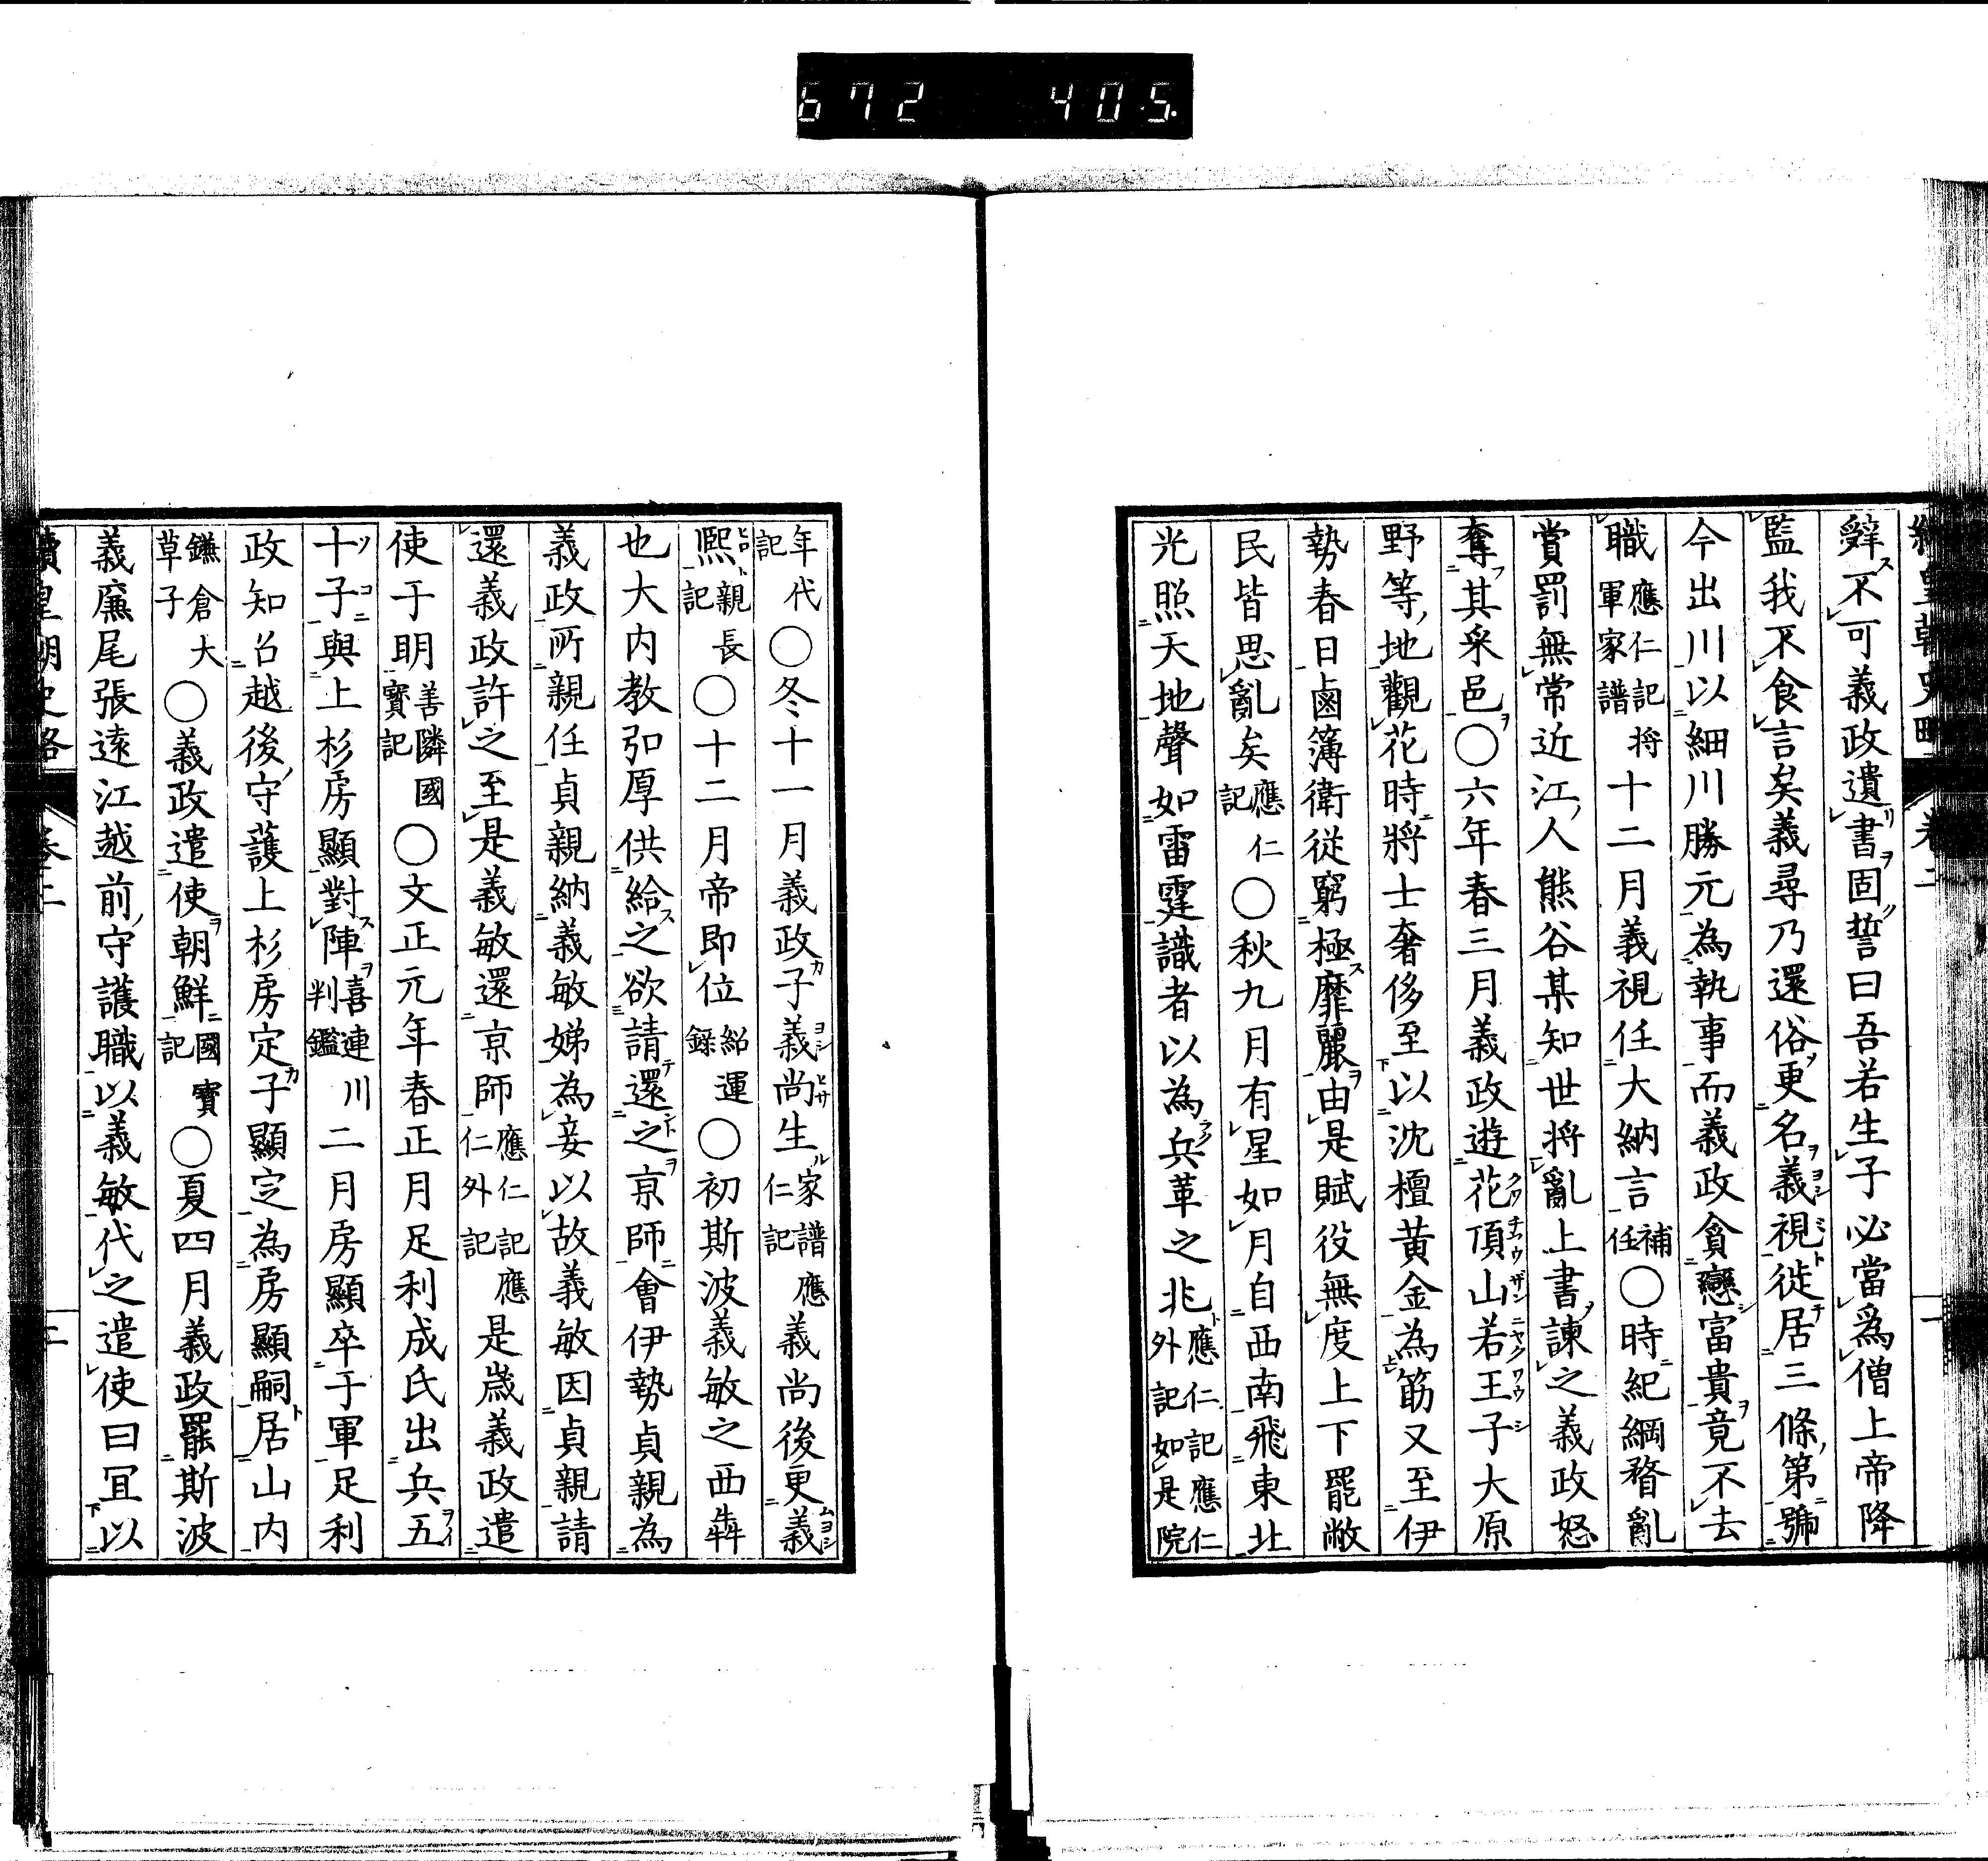 672 405.
辭不可義政遺書固誓曰吾若生子必當爲僧上帝降
監我不食言矣義尋乃還俗更名義視徙居三條第號
今出川以細川勝元為執事而義政貪戀富貴竟不去
職應仁記將軍家譜十二月義視任大納言補任〇時紀綱瞀亂
賞罰無常近江人熊谷某知世将亂上書諫之義政怒
奪其采邑〇六年春三月義政遊花頂山若王子大原
野等地觀花時將士奢侈至以沈檀黃金為筯又至伊
勢春日鹵簿衛從窮極靡麗由是賦役無度上下罷敝
民皆思亂矣應仁記〇秋九月有星如月自西南飛東北
光照天地聲如雷霆識者以為兵革之兆應仁記應仁外記如是院
年代記〇冬十一月義政子義尚生家譜應仁記義尚後更義
熈親長記〇十二月帝即位紹運錄〇初斯波義敏之西犇
也大内教弘厚供給之欲請還之京師會伊勢貞親為
義政所親任貞親納義敏娣為妾以故義敏因貞親請
還義政許之至是義敏還京師應仁記應仁外記是歲義政遣
使于明善隣國寳記〇文正元年春正月足利成氏出兵五
十子與上杉房顯對陣喜連川判鑑二月房顯卒于軍足利
政知召越後守護上杉房定子顯定為房顯嗣居山内
鎌倉大草子〇義政遣使朝鮮國寳記〇夏四月義政罷斯波
義廉尾張遠江越前守護職以義敏代之遣使曰宜以
續皇朝史略 卷二 二